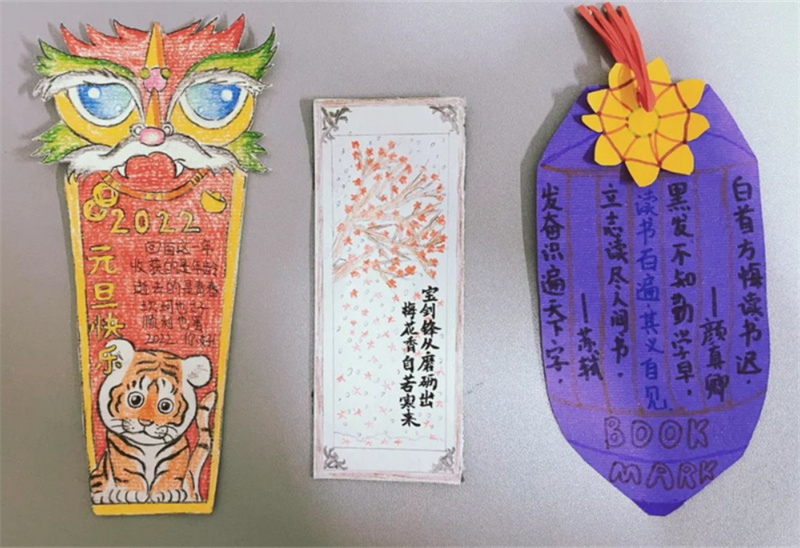 2022
元旦快乐
回首这一年
收获的是年龄
逝去的是青春
坎坷也好
顺利也罢
2022 你好!
宝剑锋从磨砺出
梅花香自苦寒来
发奋识遍天下字，
立志读尽人间书。
——苏轼
读书百遍，其义自见
黑发不知勤学早，
白首方悔读书迟。
——颜真卿
BOOK
MARK